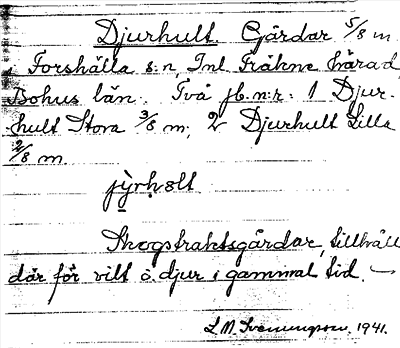 Djurhult. Gårdar 5/8 m
Forshälla s:n, Inl. Fräkne härad,
Bohus län. Två jb.n:r: 1 Djur-
hult Stora 3/8 m; 2 Djurhult Lilla
2/8 m.
Skogstraktsgårdar, tillhåll
där för vilt o. djur i gammal tid. —
1941.